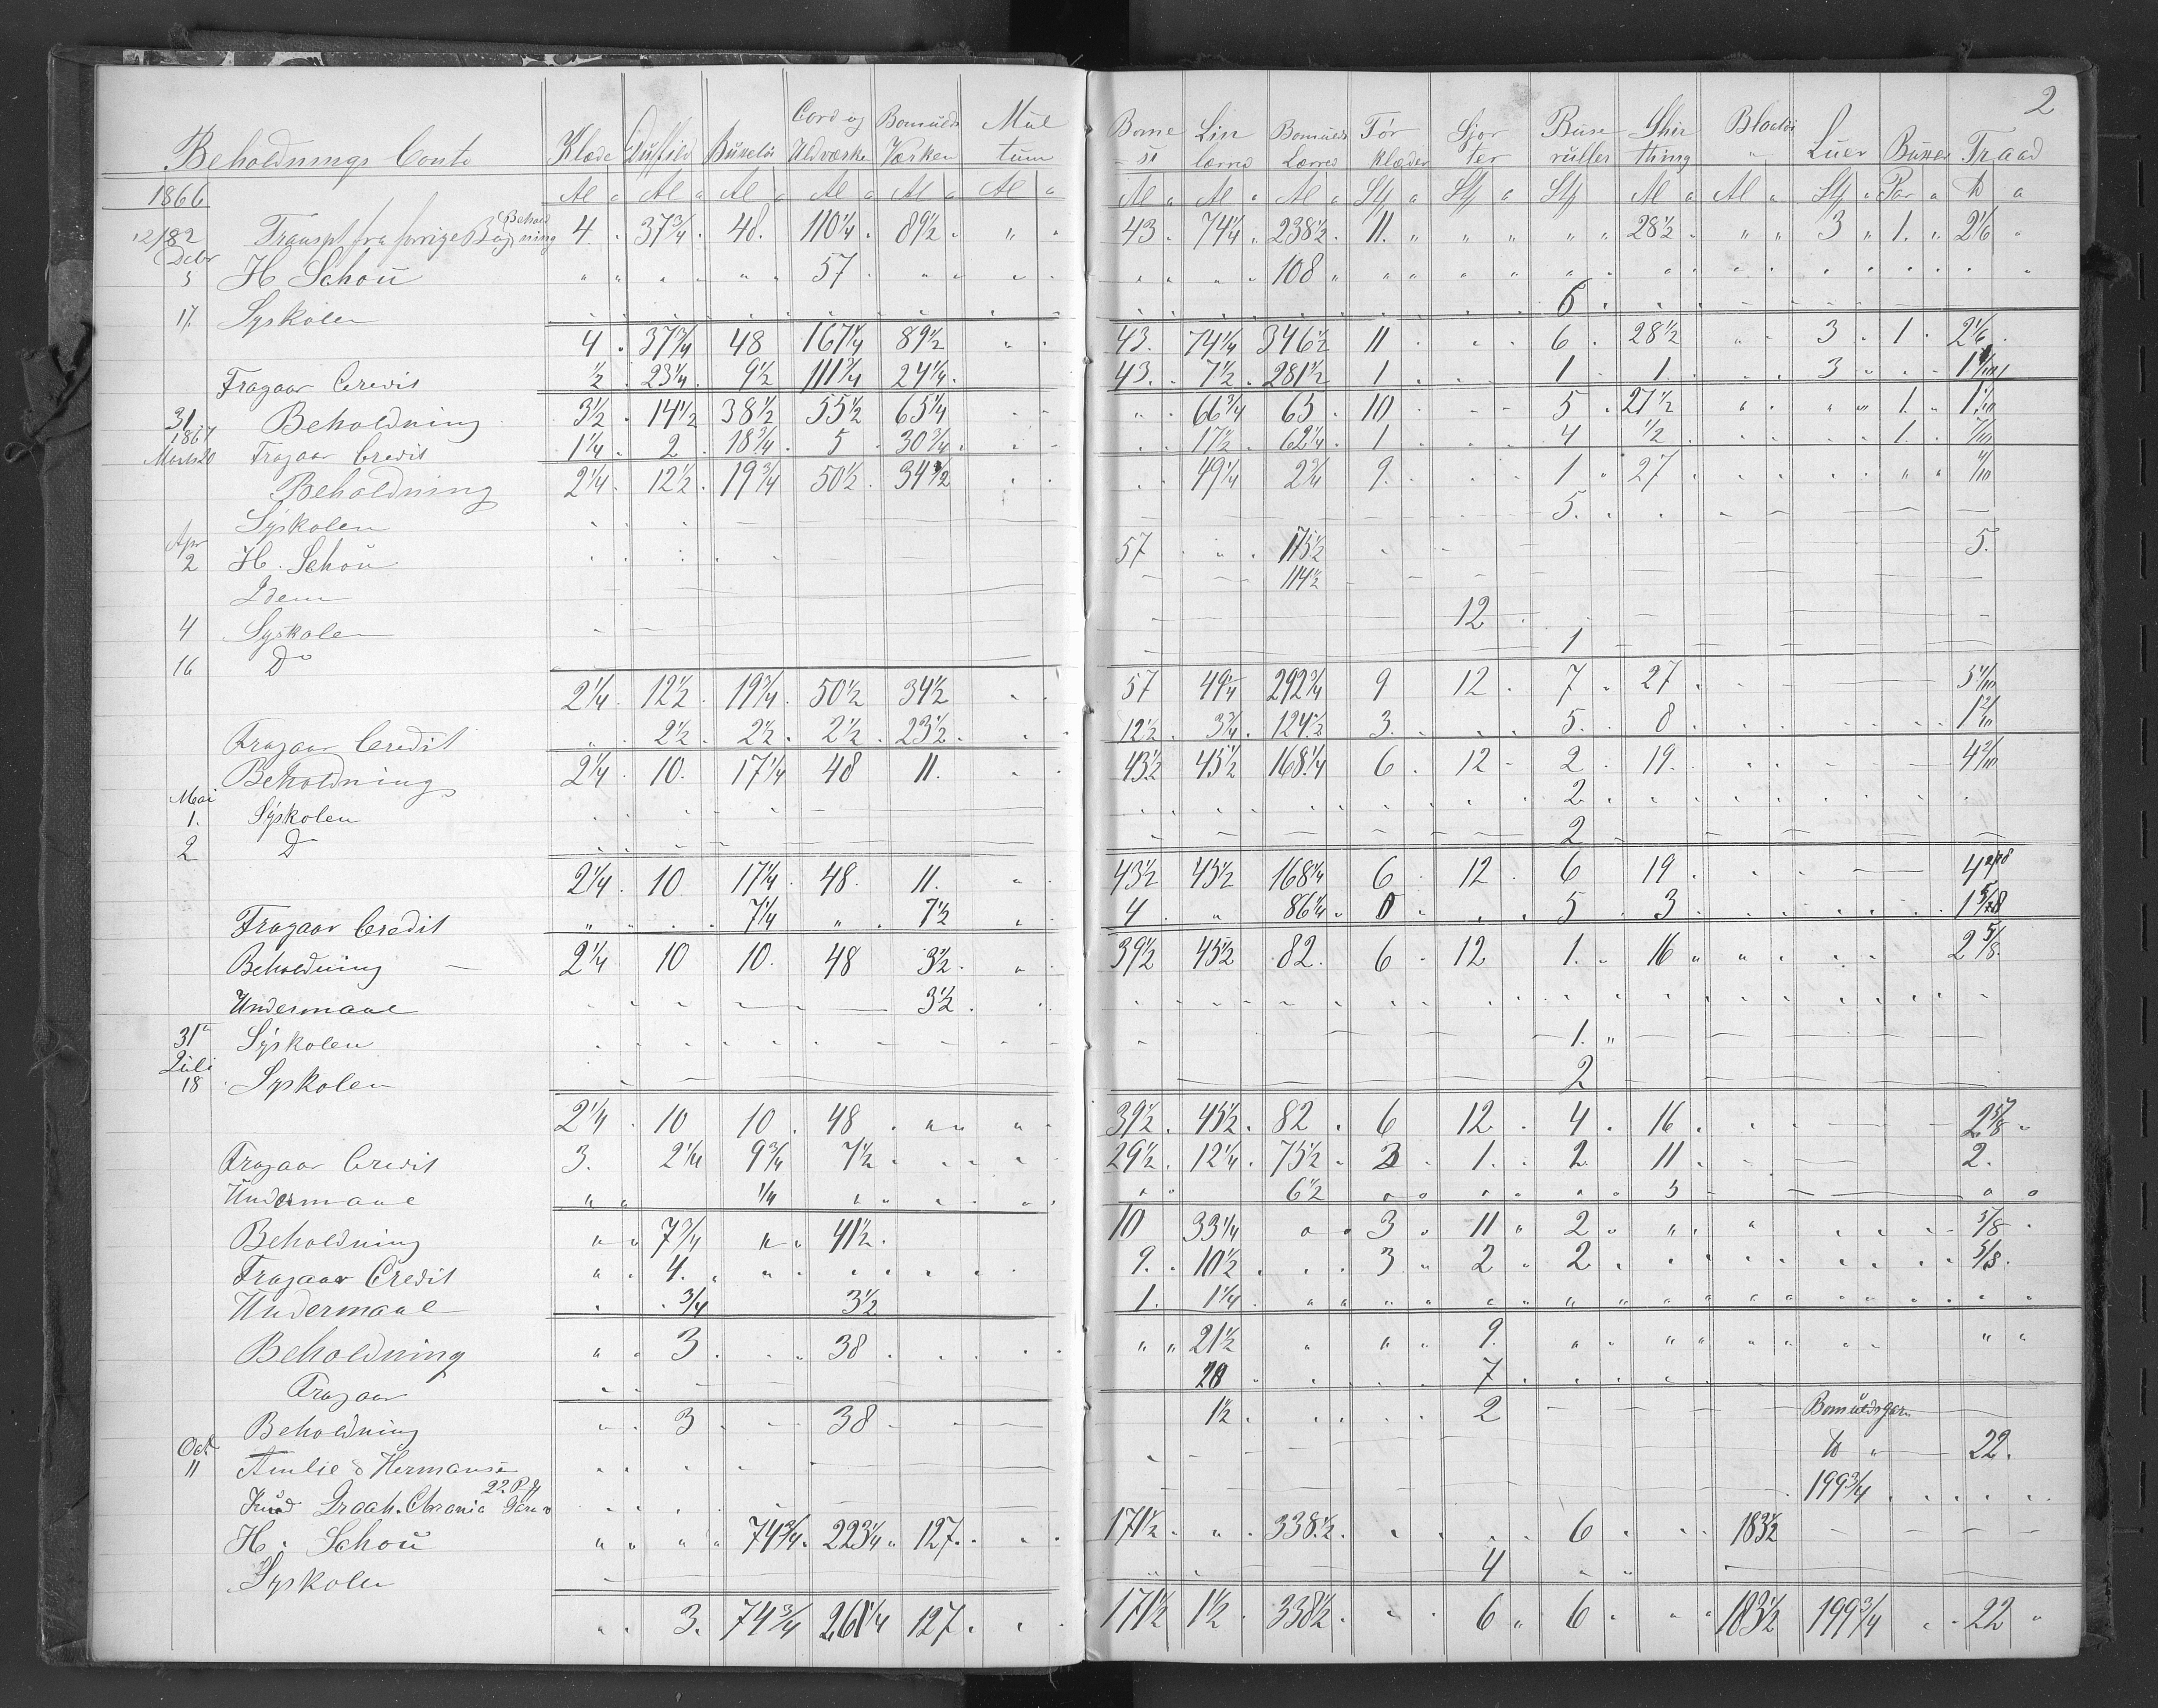 2
Beholdnings Conto Klæde Duffild Buxetöi Cord og Uldværken Bomulds Værken Mul tum Bome si Lin lærred Bomulds Lærred För klæder Sjor ter Buse ruller Shir thing Luer Buxer Traad
1866 Al Al Al Al Al Al Al Al Al Stp Stp Stp Al Al Stp Par
Transpt fra forrige Bog Behold ning 4 37 3/4 48 110 1/4 89 1/2 " 43 74 1/4 238 1/2 11 " " 28 1/2 " 3 1 2 1/6
Debr
5 H Schou 57 108
17 Syskolen 6
4 37 3/4 48 167 1/4 89 1/2 43 74 1/4 346 1/2 11 6 28 1/2 3 1 2 1/6
Fragaar Credit 1/2 23 1/4 9 1/2 111 3/4 24 1/4 43 7 1/2 281 1/2 1 1 1 3
31 Beholdning 3 1/2 14 1/2 38 1/2 55 1/2 65 1/4 66 3/4 65 10 5 27 1/2 1
1867
Marts 20 Fragaar Credit 1 1/4 2 18 3/4 5 30 3/4 17 1/2 62 1/4 1 4 1/2 1
Beholdning 2 1/4 12 1/2 19 3/4 50 1/2 34 1/2 49 1/4 2 3/4 9 1 27
Syskolen 5
Apr
2 H. Schou 57 175 1/2 5
Idem 114 1/2
4 Syskolen 12
16 Do 1
2 1/4 12 1/2 19 3/4 50 1/2 34 1/2 57 49 1/4 292 3/4 9 12 7 27
Fragaar Credit 2 1/2 2 1/2 2 1/2 23 1/2 12 1/2 3 3/4 124 1/2 3 5 8
Beholdning 2 1/4 10 17 1/4 48 11 43 1/2 45 1/2 168 1/4 6 12 2 19
Mai
1. Syskolen 2
2 D 2
2 1/4 10 17 1/4 48 11 43 1/2 45 1/2 168 1/4 6 12 6 19
Fragaar Credit 7 1/4 7 1/2 4 86 1/4 0 5 3
Beholdning 2 1/4 10 10 48 3 1/2 39 1/2 45 1/2 82 6 12 1 16 2 5/8
Undermaal 3 1/2
31 Syskolen 1
Juli
18 Syskolen 2
2 1/4 10 10 48 39 1/2 45 1/2 82 6 12 4 16 2 5/8
Fragaar Credit 3 2 1/4 9 3/4 7 1/2 29 1/2 12 1/4 75 1/2 3 1 2 11 2
Undermaal 1/4 6 1/2 5
Beholdning 7 3/4 41 1/2 10 33 1/4 3 11 2 5/8
Fragaar Credit 4 9 10 1/2 3 2 2 5/8
Undermaal 3/4 3 1/2 1 1 1/4
Beholdning 3 38 21 1/2 9
Fragaar 20 7
Beholdning 3 38 1 1/2 2 Bomuldsgarn
Oct
11 Amlie & Hermansen 22
Knud Graah. Chrania 22 P Garn 199 3/4
H. Schou 74 3/4 223 1/4 127 171 1/2 338 1/2 6 183 1/2
Syskolen 4
3 74 3/4 261 1/4 127 171 1/2 1 1/2 338 1/2 6 6 183 1/2 199 3/4 22